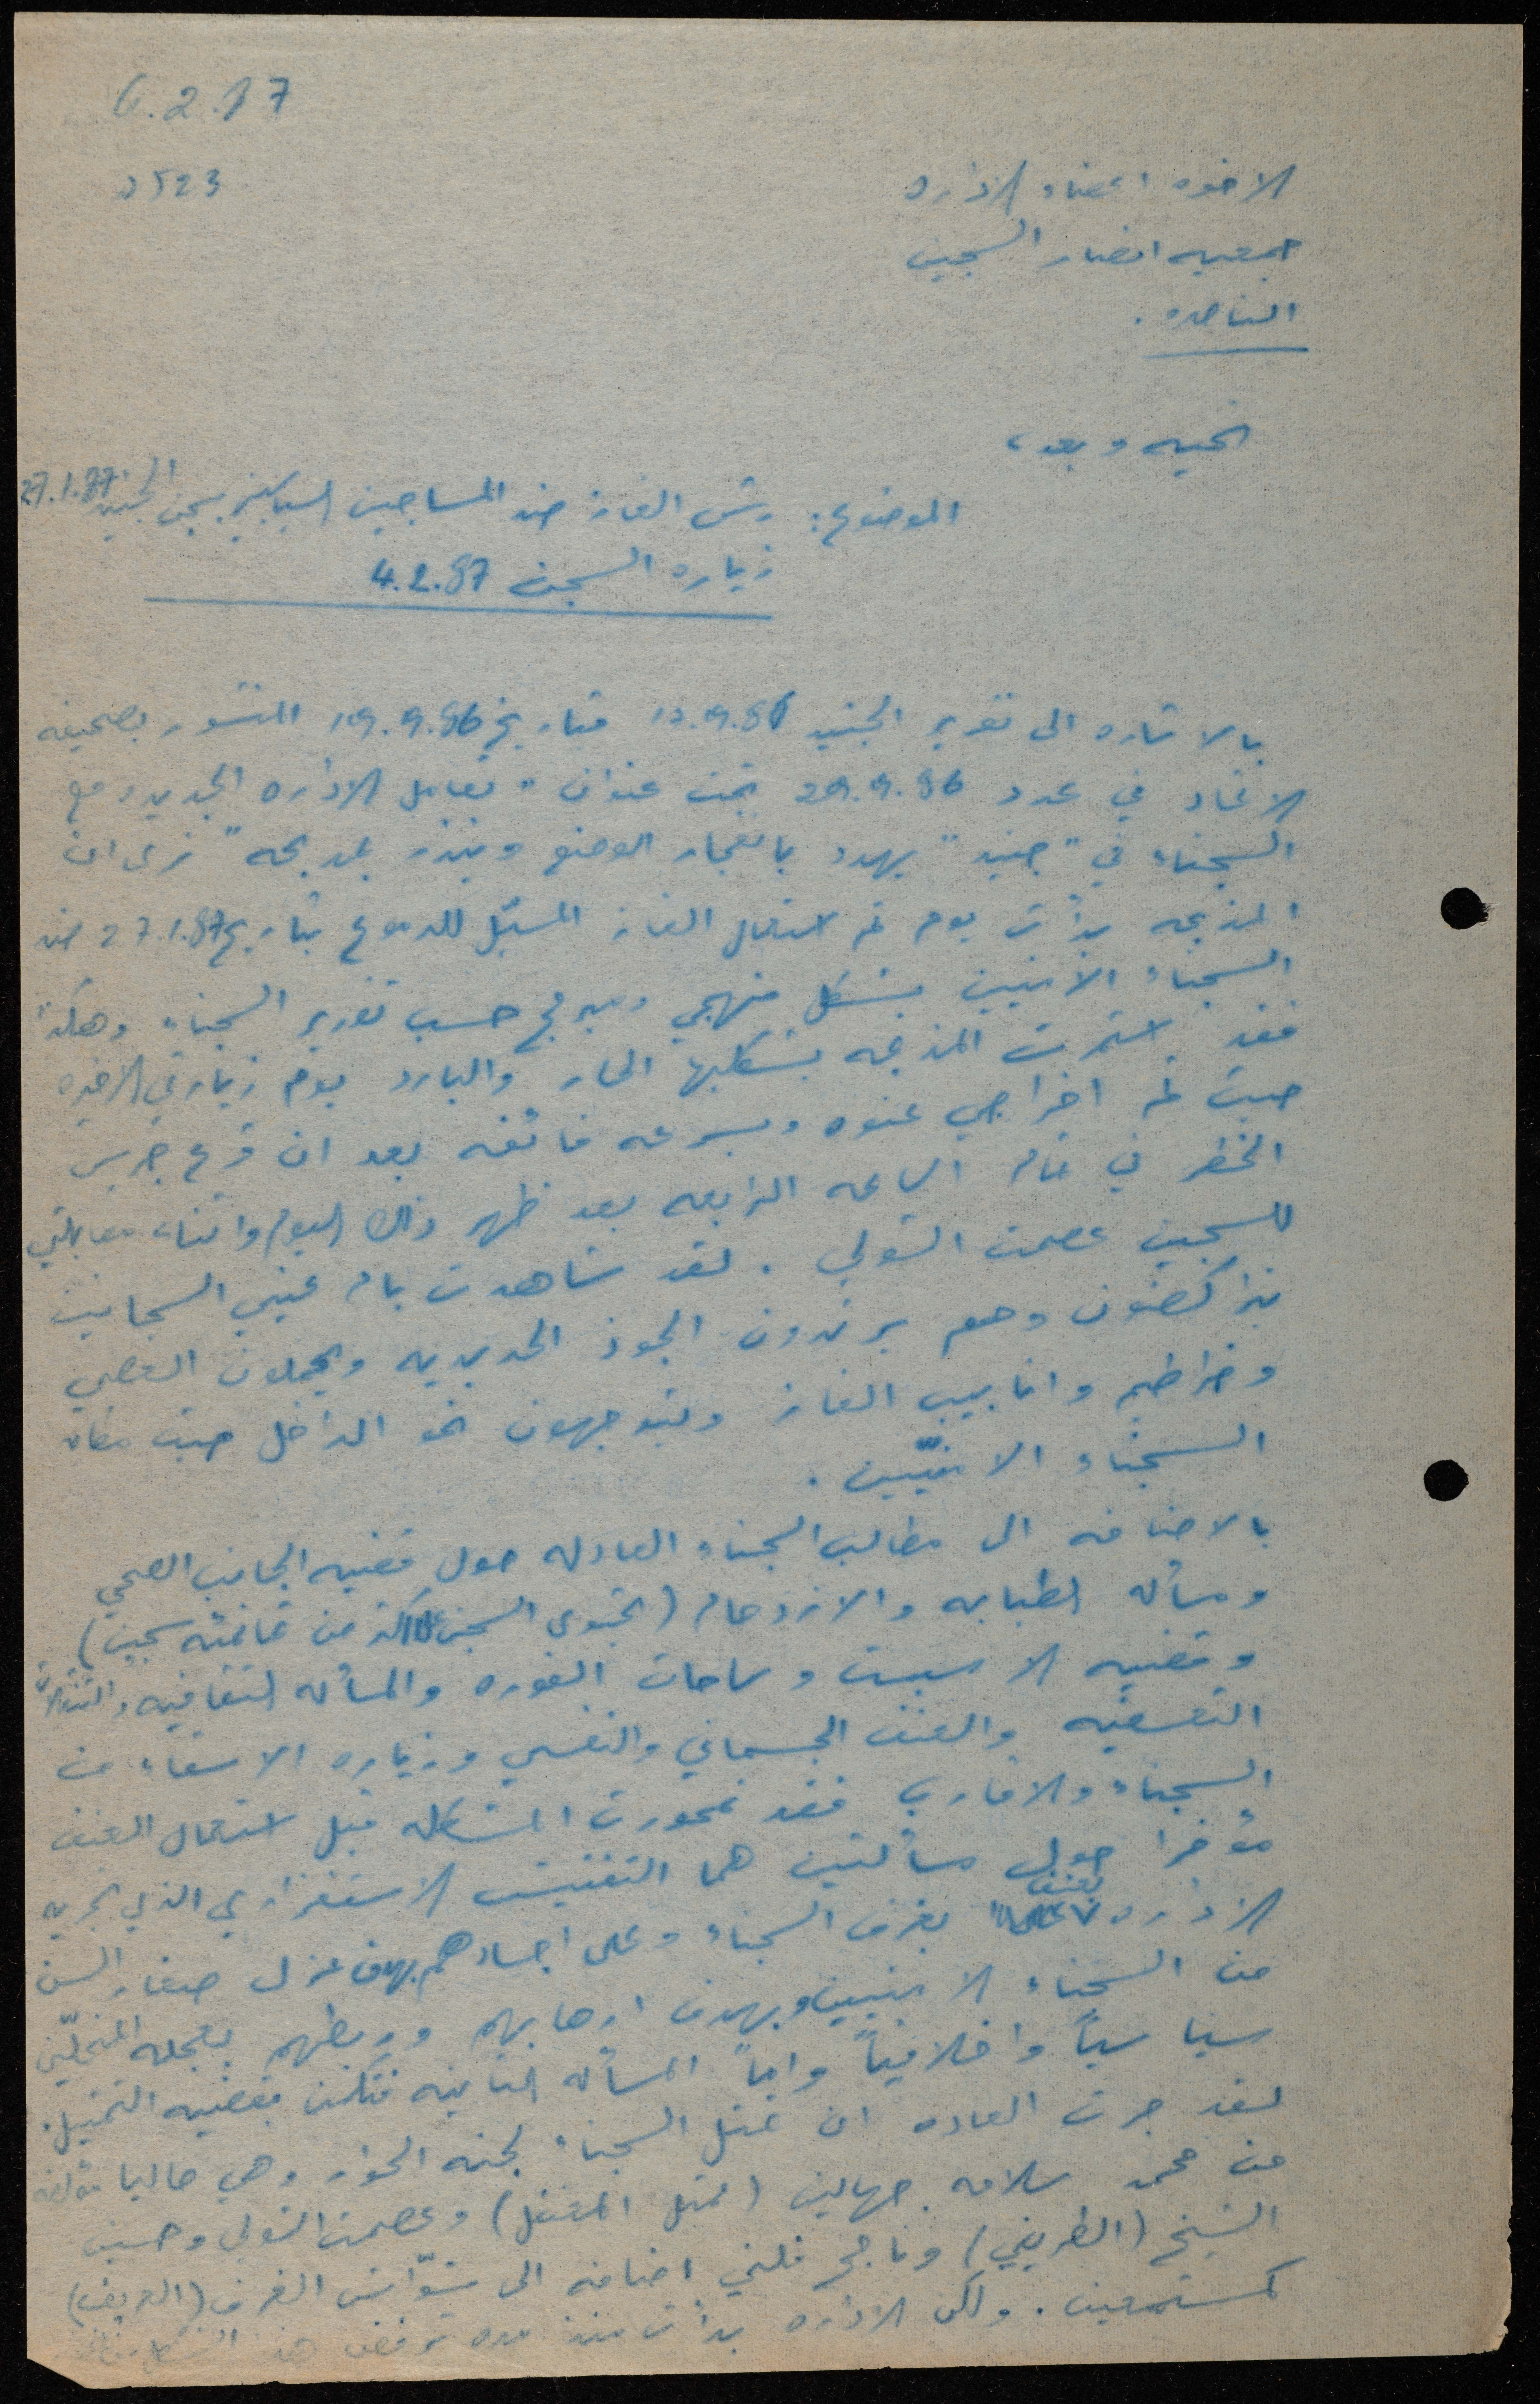 6.2.87
الاخوه اعضاء الاداره
جمعيه انصار السجين
الناصره.
تحيه وبعد،
الموضوع: رش الغاز ضد المساجين السياسيين بسجن الجنيد 27.1.87
زياره السجن 4.2.87
بالاشاره الى تقرير الجنيد 12.9.86 بتاريخ 19.9.86 المنشور بصحيفه
الاتحاد في عدد 29.9.86 تحت عنوان "تعامل الاداره الجديده مع
السجناء في "جنيد" يهدد بانفجار الوضع وينذر بمذبحه" نرى ان
المذبحه بدأت يوم تم استعمال الغاز المسيّل للدموع بتاريخ 27.1.87 ضد
السجناء الامنيين بشكل منهجي ومبرمج حسب تقرير السجناء وهكذا
فقد استمرت المذبحه بشكليها الحار والبارد يوم زيارتي الاخيره
حيث تم اخراجي عنوه وبسرعه فائقه بعد ان قرع جرس
الخطر في تمام الساعه الرابعه بعد ظهر ذلك اليوم واثناء مقابلتي
للسجين عصمت الشولي. لقد شاهدت بام عيني السجانين
يتراكضون وهم يرتدون الخوذ الحديديه ويحملون العصي
وخراطيم وانابيب الغاز ويتوجهون نحو الداخل حيث مكان
السجناء الامنيّين.
بالاضافه الى مطالب السجناء العادله حول قضيه الجانب الصحي
ومسأله الطبابه والازدحام (يحتوي السجن اكثر من ثمانمئه سجين)
وقضيه الاسبست وساحات الفوره والمسأله الثقافيه والتنقلات
التعسفيه والعنف الجسماني والنفسي وزياره الاشقاء من
السجناء والاقارب فقد تمحورت المشكله قبل استعمال العنف
مؤخرا حول مسألتين هما التفتيش الاستفزازي الذي تجريه
الاداره بعنف بغرف السجناء وعلى اجسادهم بهدف عزل صغار السن
من السجناء الامنيين وبهدف ارهابهم وربطهم بعجله المنحلّين
سياسياً واخلاقياً واما المسأله الثانيه فتكمن بقضيه التمثيل.
لقد جرت العاده ان تمثل السجناء لجنه الحوار وهي حاليا مؤلفه
من محمد سلامه جهالين (ممثل المعتقل) وعصمت الشولي وحسين
الشيخ (الطريفي) وناجح فلني اضافه الى شوّاش الغرف (العريف)
كمستمعين. ولكن الاداره بدأت منذ مده ترفض هذا الشكل